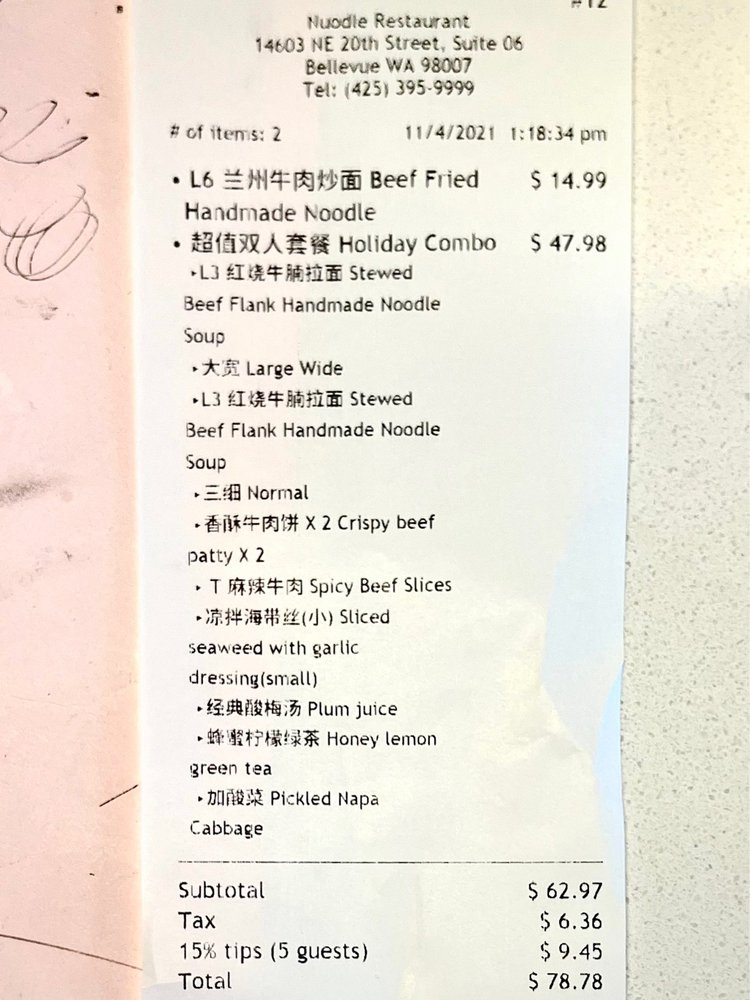 #12
Nuodle Restaurant
14603 NE 20th Street, Suite 06
Bellevue WA 98007
Tel: (425) 395-9999
# of items: 2 11/4/2021 1:18:34 pm
• L6 兰州牛肉炒面 Beef Fried $ 14.99
Handmade Noodle
• 超值双人套餐 Holiday Combo $ 47.98
▸L3 红烧牛腩拉面 Stewed
Beef Flank Handmade Noodle
Soup
▸大宽 Large Wide
▸L3 红烧牛腩拉面 Stewed
Beef Flank Handmade Noodle
Soup
▸三细 Normal
▸香酥牛肉饼 X 2 Crispy beef
patty X 2
▸ T 麻辣牛肉 Spicy Beef Slices
▸凉拌海带丝(小) Sliced
seaweed with garlic
dressing(small)
▸经典酸梅汤 Plum juice
▸蜂蜜柠檬绿茶 Honey lemon
green tea
▸加酸菜 Pickled Napa
Cabbage
Subtotal $ 62.97
Tax $ 6.36
15% tips (5 guests) $ 9.45
Total $ 78.78